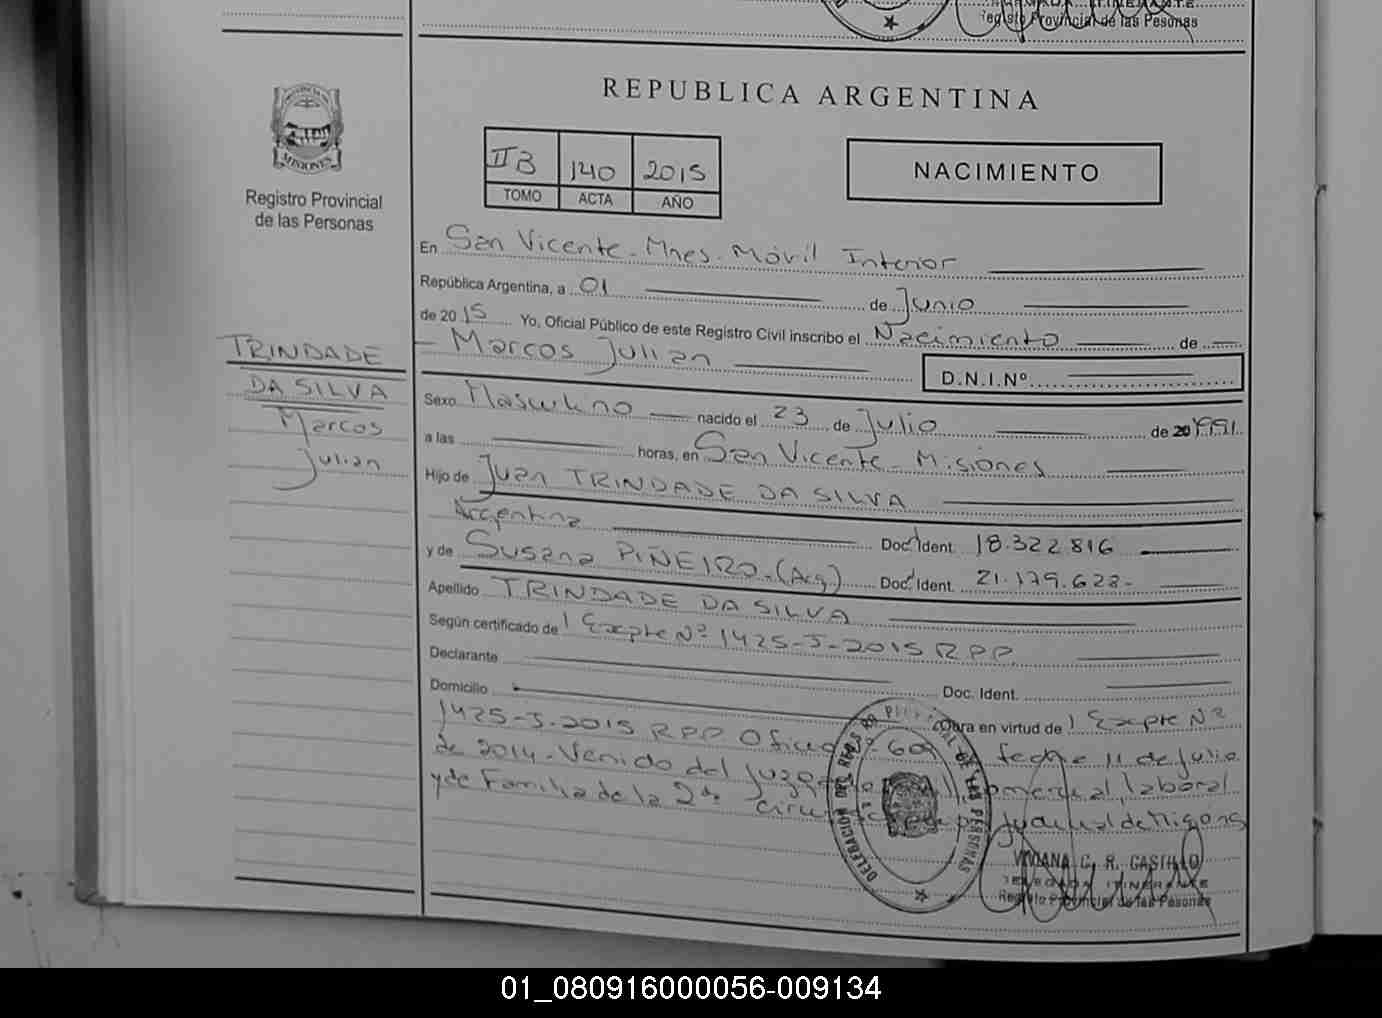 Registro Provincial de las Pesonas
REPUBLICA ARGENTINA
MISIONES
Registro Provincial
de las Personas
II B 140 2015
TOMO ACTA AÑO
NACIMIENTO
En San Vicente - Mnes. Móvil Interior
República Argentina, a 01 de Junio
de 2015 Yo, Oficial Público de este Registro Civil inscribo el Nacimiento de
- Marcos Julian
D.N.I.Nº
TRINDADE
DA SILVA
Marcos
Julian
Sexo Masculino nacido el 23 de Julio de 20 1991
a las horas, en San Vicente - Misiones
Hijo de Juan TRINDADE DA SILVA
Argentina Doc. Ident. 18.322.816
y de Susana PIÑEIRO. (Arg.) Doc. Ident. 21.179.628-
Apellido TRINDADE DA SILVA
Según certificado de Expte Nº 1425-J-2015 RPP
Declarante
Domicilio Doc. Ident.
Obra en virtud de Expte Nº
1425-J-2015 RPP Oficio fecha 11 de Julio
de 2014 - Venido del Juzgado Comercial, laboral
y de Familia de la 2da Judicial de Misiones
DELEGACION DEL REGISTRO PROVINCIAL DE LAS PERSONAS
VIVIANA C. R. CASTILLO
DELEGADA ITINERANTE
Registo Provincial de las Pesonas
01_080916000056-009134